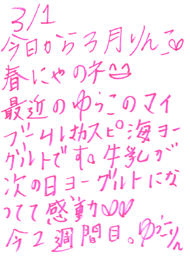 3/1
今日から3月りんこ♡
春にゃのネ
最近のゆうこのマイ
ブームはカスピ海ヨー
グルトです。牛乳が
次の日ヨーグルトにな
ってて感動♡♡
今2週間目。ゆうこりん